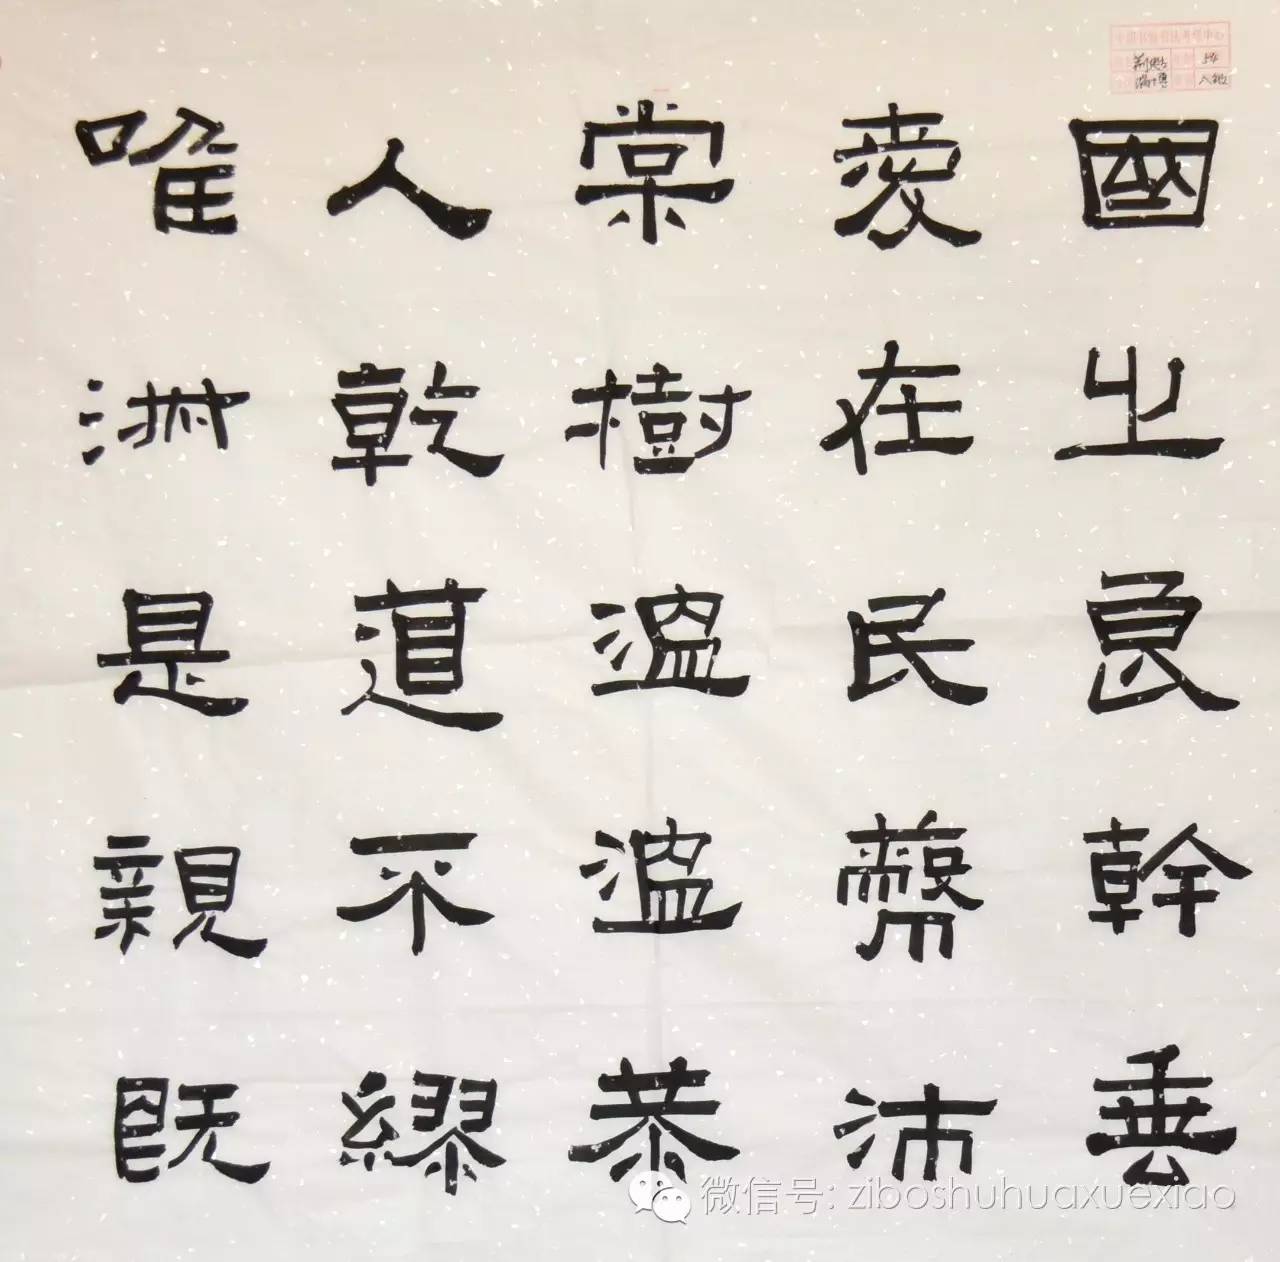 國之良幹垂
愛在民蔽沛
棠樹溫溫恭
人乾道不繆
唯淑是親既
微信号: ziboshuhuaxuexiao